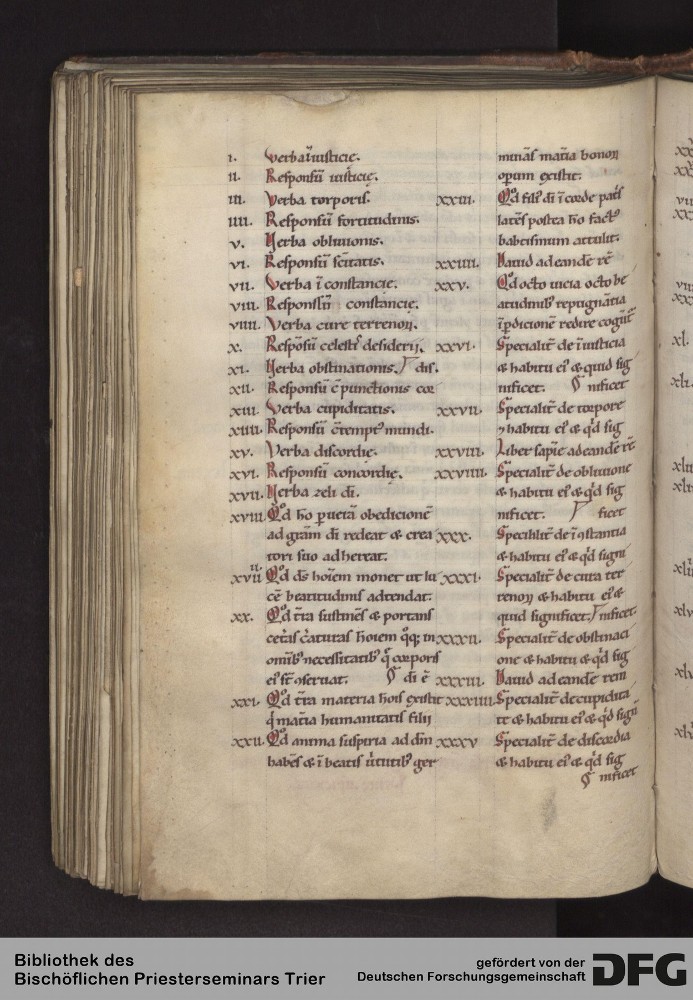 i. Verba iniusticie.
ii. Responsū iusticię.
iii. Verba torporis.
iiii. Responsū fortitudinis.
v. Verba obliuionis.
vi. Responsū sc̄itatis.
vii. Verba ī constancie.
viii. Responsū constancię.
viiii. Verba cure terrenoꝝ.
x. Respōsū celestis desiderij.
xi. Verba obstinationis. dis.
xii. Responsū cōpunctionis cor
xiii. Verba cupiditatis.
xiiii. Responsū cōtemptꝰ mundi.
xv. Verba discordię.
xvi. Responsū concordię.
xvii. Verba zeli di.
xviii. Qd ho p uerā obedicionē
ad grām di redeat & crea
tori suo adhereat.
xviiii. Qd ds hoīem monet ut lu
cē beatitudinis adtendat.
xx. Qd tr̄a sustinēs & portans
cetās c̄aturas hoīem qqꝫ in
omībꝰ necessitatibꝰ q̄ corporis
eiꝰ st̄ ꝯseruat. di ē
xxi. Qd tr̄a materia hoīs existit
q̄ mat̄ia humanitatis filii
xxii. Qd anima suspiria ad dm̄
habēs & ī beatis uirtutibꝰ ger
minās mat̄ia bonoꝝ
operum existit.
xxiii. Qd filꝰ di ī corde patris
latēs postea ho factꝰ
babtismum attulit.
xxiiii. Dauid ad eandē rē
xxv. Qd octo uicia octo be
atudinibꝰ repugnātia
ī pdicionē redire coguīt
xxvi. Specialit̄ de iniusticia
& habitu eiꝰ & quid sig
nificet. nificet
xxvii. Specialit̄ de torpore
⁊ habitu eiꝰ & qd sig
xxviii. Liber sapīe ad eandē rē
xxviiii. Specialit̄ de obliuione
& habitu eiꝰ & qd sig
nificet. ficet
xxx. Specihlit̄ de īꝯstantia
& habitu eiꝰ & qd signi
xxxi. Specialit̄ de cura ter
renoꝝ & habitu eiꝰ &
quid significet. nificet.
xxxii. Specialit̄ de obstinaci
one & habitu & qd sig
xxxiii. Dauid ad eandē rem
xxxiiii. Specialit̄ de cupidita
te & habitu eiꝰ & qd signi
xxxv Specialit̄ de discordia
& habitu eiꝰ & qd sig
nificet
Bibliothek des
Bischöflichen Priesterseminars Trier
gefördert von der
Deutschen Forschungsgemeinschaft
DFG